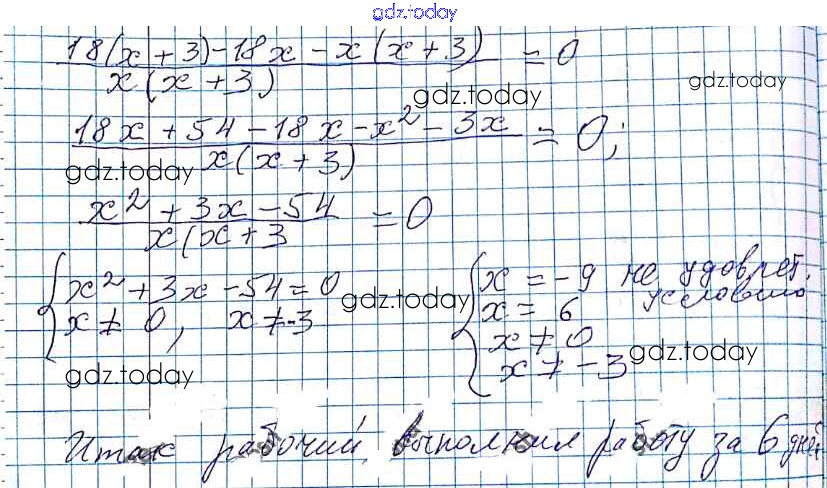 gdz.today
18(x+3)-18x-x(x+3) / x(x+3) = 0
gdz.today
gdz.today
18x+54-18x-x²-3x / x(x+3) = 0;
gdz.today
x²+3x-54 / x(x+3 = 0
{ x²+3x-54=0
x≠0, x≠-3
gdz.today
{ x=-9 не удовлет. условию
x=6
x≠0
x≠-3
gdz.today
gdz.today
Итак рабочий выполнил работу за 6 дней